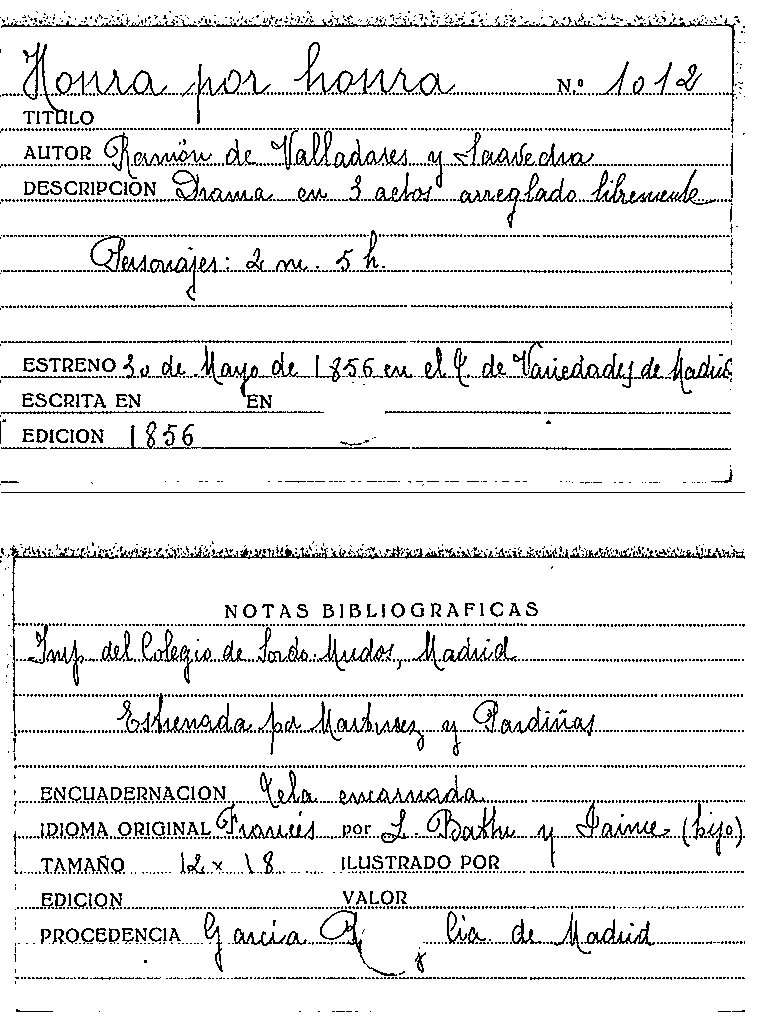 Honra por honra N.º 1012
TITULO
AUTOR Ramón de Valladares y Saavedra
DESCRIPCION Drama en 3 actos arreglado libremente
Personajes: 2 m. 5 h.
ESTRENO 30 de Mayo de 1856 en el T. de Variedades de Madrid
ESCRITA EN EN
EDICION 1856
NOTAS BIBLIOGRAFICAS
Imp. del Colegio de Sordo-Mudos, Madrid
Estrenada por Martinez y Pardiñas
ENCUADERNACION Tela encarnada
IDIOMA ORIGINAL Francés por L. y Jaime (hijo)
TAMAÑO 12 x 18 ILUSTRADO POR
EDICION VALOR
PROCEDENCIA Garcia de Madrid